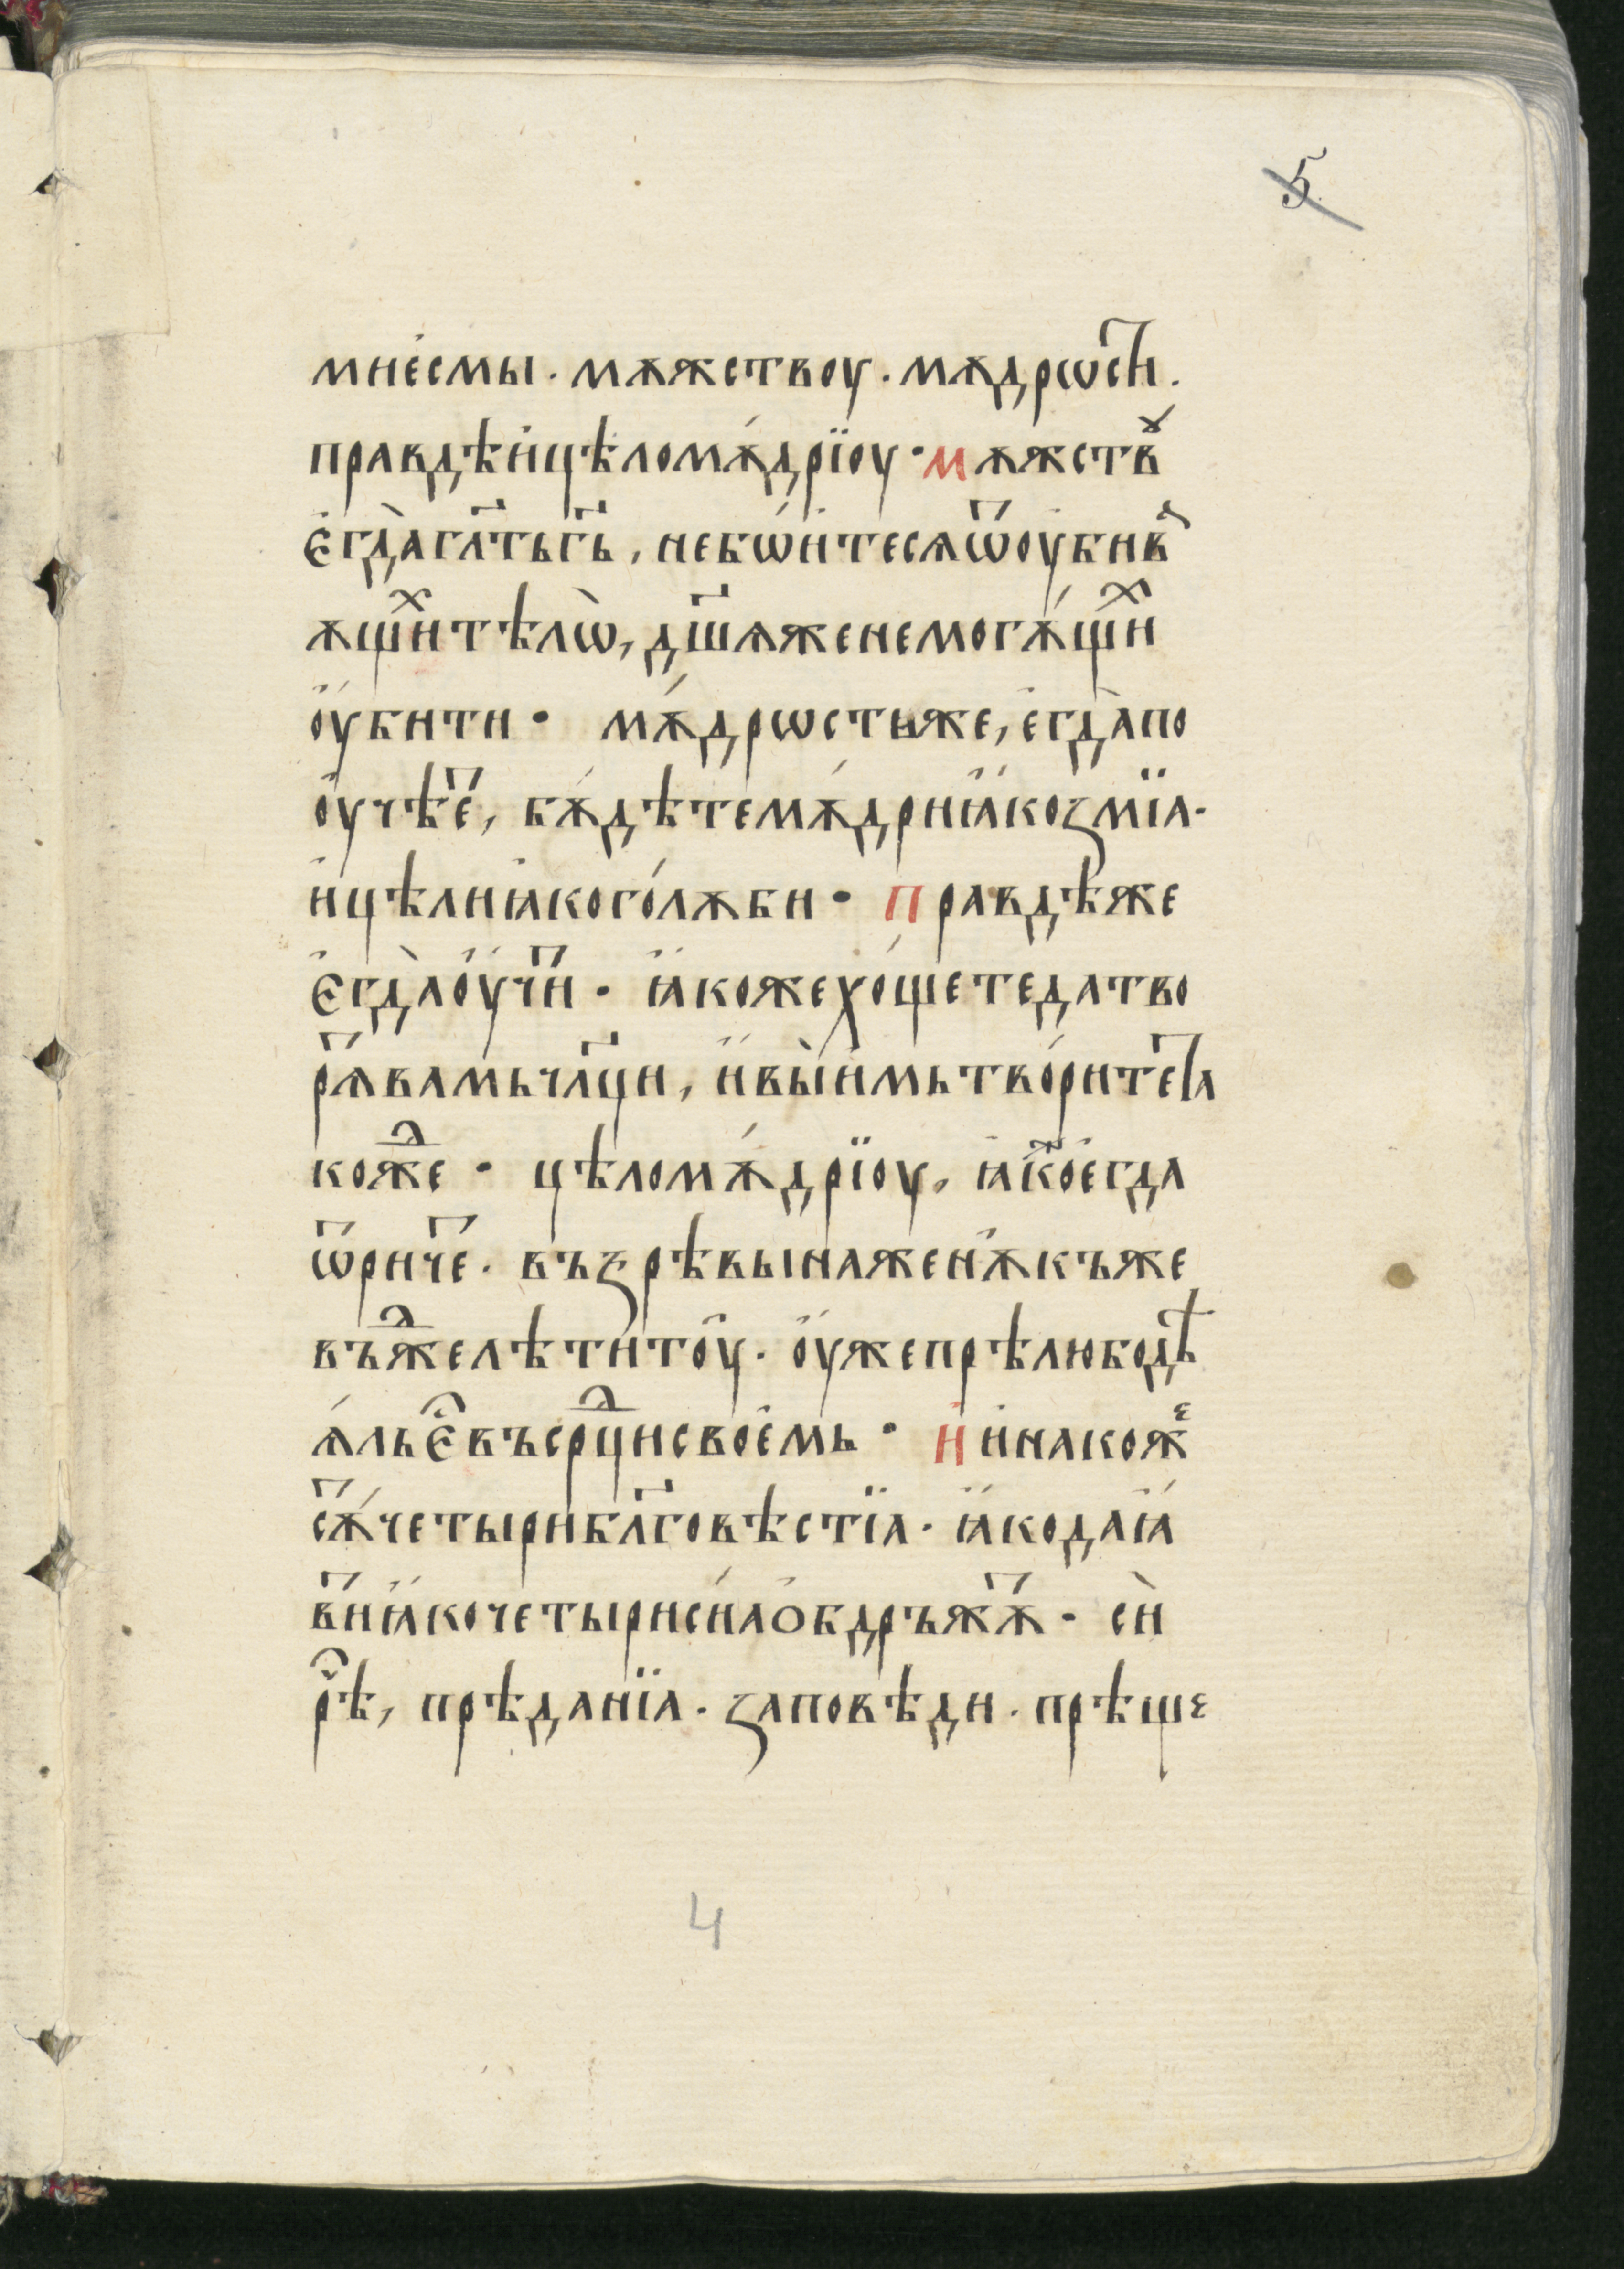 5
мнесмы · мѫжествоу · мѫдрѡст҇и ·
правдѣ и҆цѣломѫ́дрїоу · мѫжствꙋ
є҆гда̀гл҃тьгь҃, небѡ́и҆тесѧѿоу҆бив
ѫщи́х тѣлѡ̀, дш҃ѫженемогѫ́щих
оу҆́бити · мѫ́дрѡстьже, е҆гда̀по
оу҆чѣ́ет, бѫ́дѣтемѫ́дриꙗ҆́коꙁмїа ·
и҆цѣлиꙗ҆кого́лѫби · правдѣже
є҆гда̀оу҆чи́т · ꙗ҆́кожехо́щетедатво
рѧ́твамьчл҃ци, и҆́вы̀и҆мьтво́рите т꙯а
кож҇де · цѣломѫ́дрїоу, ꙗ҆́кое҆гда
ѿрич҇е · въꙁрѣвынаженѫ̀къже
въж҇делѣтито́у · оу҆́жепрѣлюбодѣ
ѧ́льє҆́ въср҇дцисвое҆мь · и҆ и҆накоже
сѫ́т четырибл҃говѣстїа · ꙗ҆́кодаꙗ҆́
ви́т ꙗ҆́кочетырисиа҆̀обдръжѫ́т · сѝ
рѣ́ч, прѣданїа · ꙁаповѣди · прѣще
4